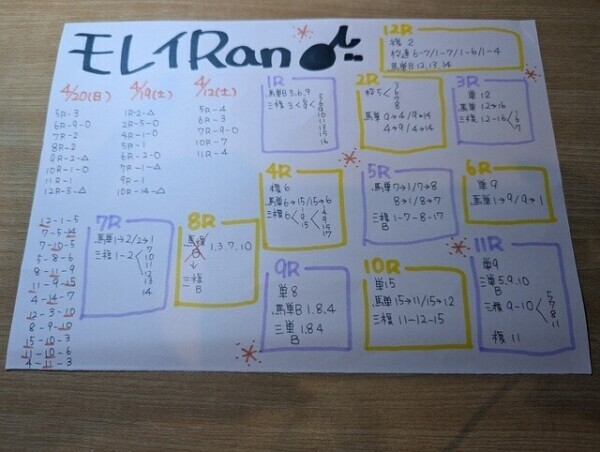 モレイRan
4/20(日)
5R-3
6R-9-0
7R-2
8R-2
9R-2-△
10R-1-0
11R-1
12R-5-△
4/19(土)
1R-2-△
2R-5-0
4R-1-0
5R-1
6R-2-0
7R-1-△
9R-1
10R-14-△
4/12(土)
5R-4
6R-3
7R-9-0
10R-7
11R-4
12-1-5
7-5-14
7-10-5
5-8-6
8-11-9
11-9-15
4-14-7
12-3-10
8-9-10
15-10-3
11-10-6
4-11-3
1R
馬単B 3.6.9
三複 3<8<
5
6
9
10
13
15
16
2R
枠5<
3
6
7
8
馬単 9→4/9→14
4→9/4→14
3R
単12
馬単 12→16
三複 12-16<
6
7
4R
複6
馬単6→15/15→6
三複6<
1
9
15
<
1
9
15
17
5R
馬単 7→1/7→8
8→1/8→7
三複 1-7-8-17
B
6R
単9
馬単 1→9/9→1
7R
馬単1→2/2→1
三複1-2<
7
10
11
12
13
14
8R
馬複
B
1,3,7,10
↓
三複
B
9R
単8
馬単B 1.8.4
三単 1.8.4
B
10R
単15
馬単 15→11/15→12
三複 11-12-15
11R
単9
三単5.9.10
B
三複 9-10<
5
7
8
11
複 11
12R
複 2
枠連 6-7/1-7/1-6/1-4
馬単B 12,13,14